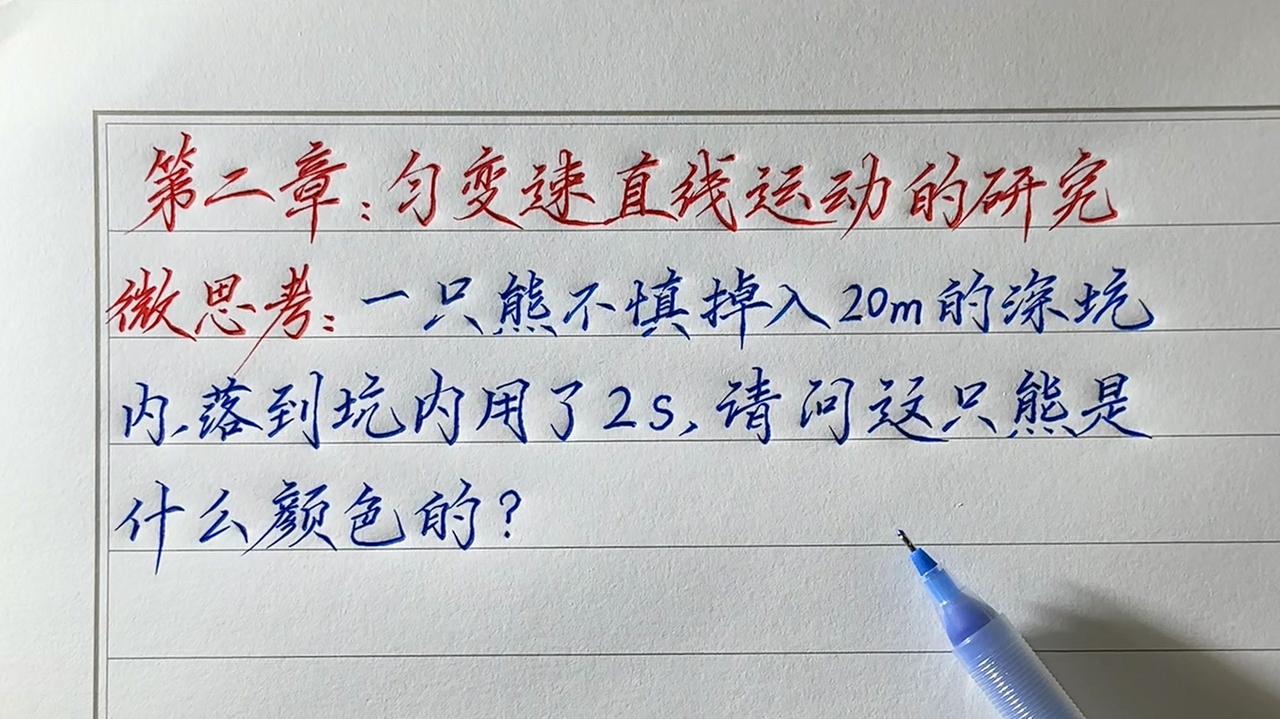 第二章:匀变速直线运动的研究
微思考:一只熊不慎掉入20m的深坑
内,落到坑内用了2s,请问这只熊是
什么颜色的?